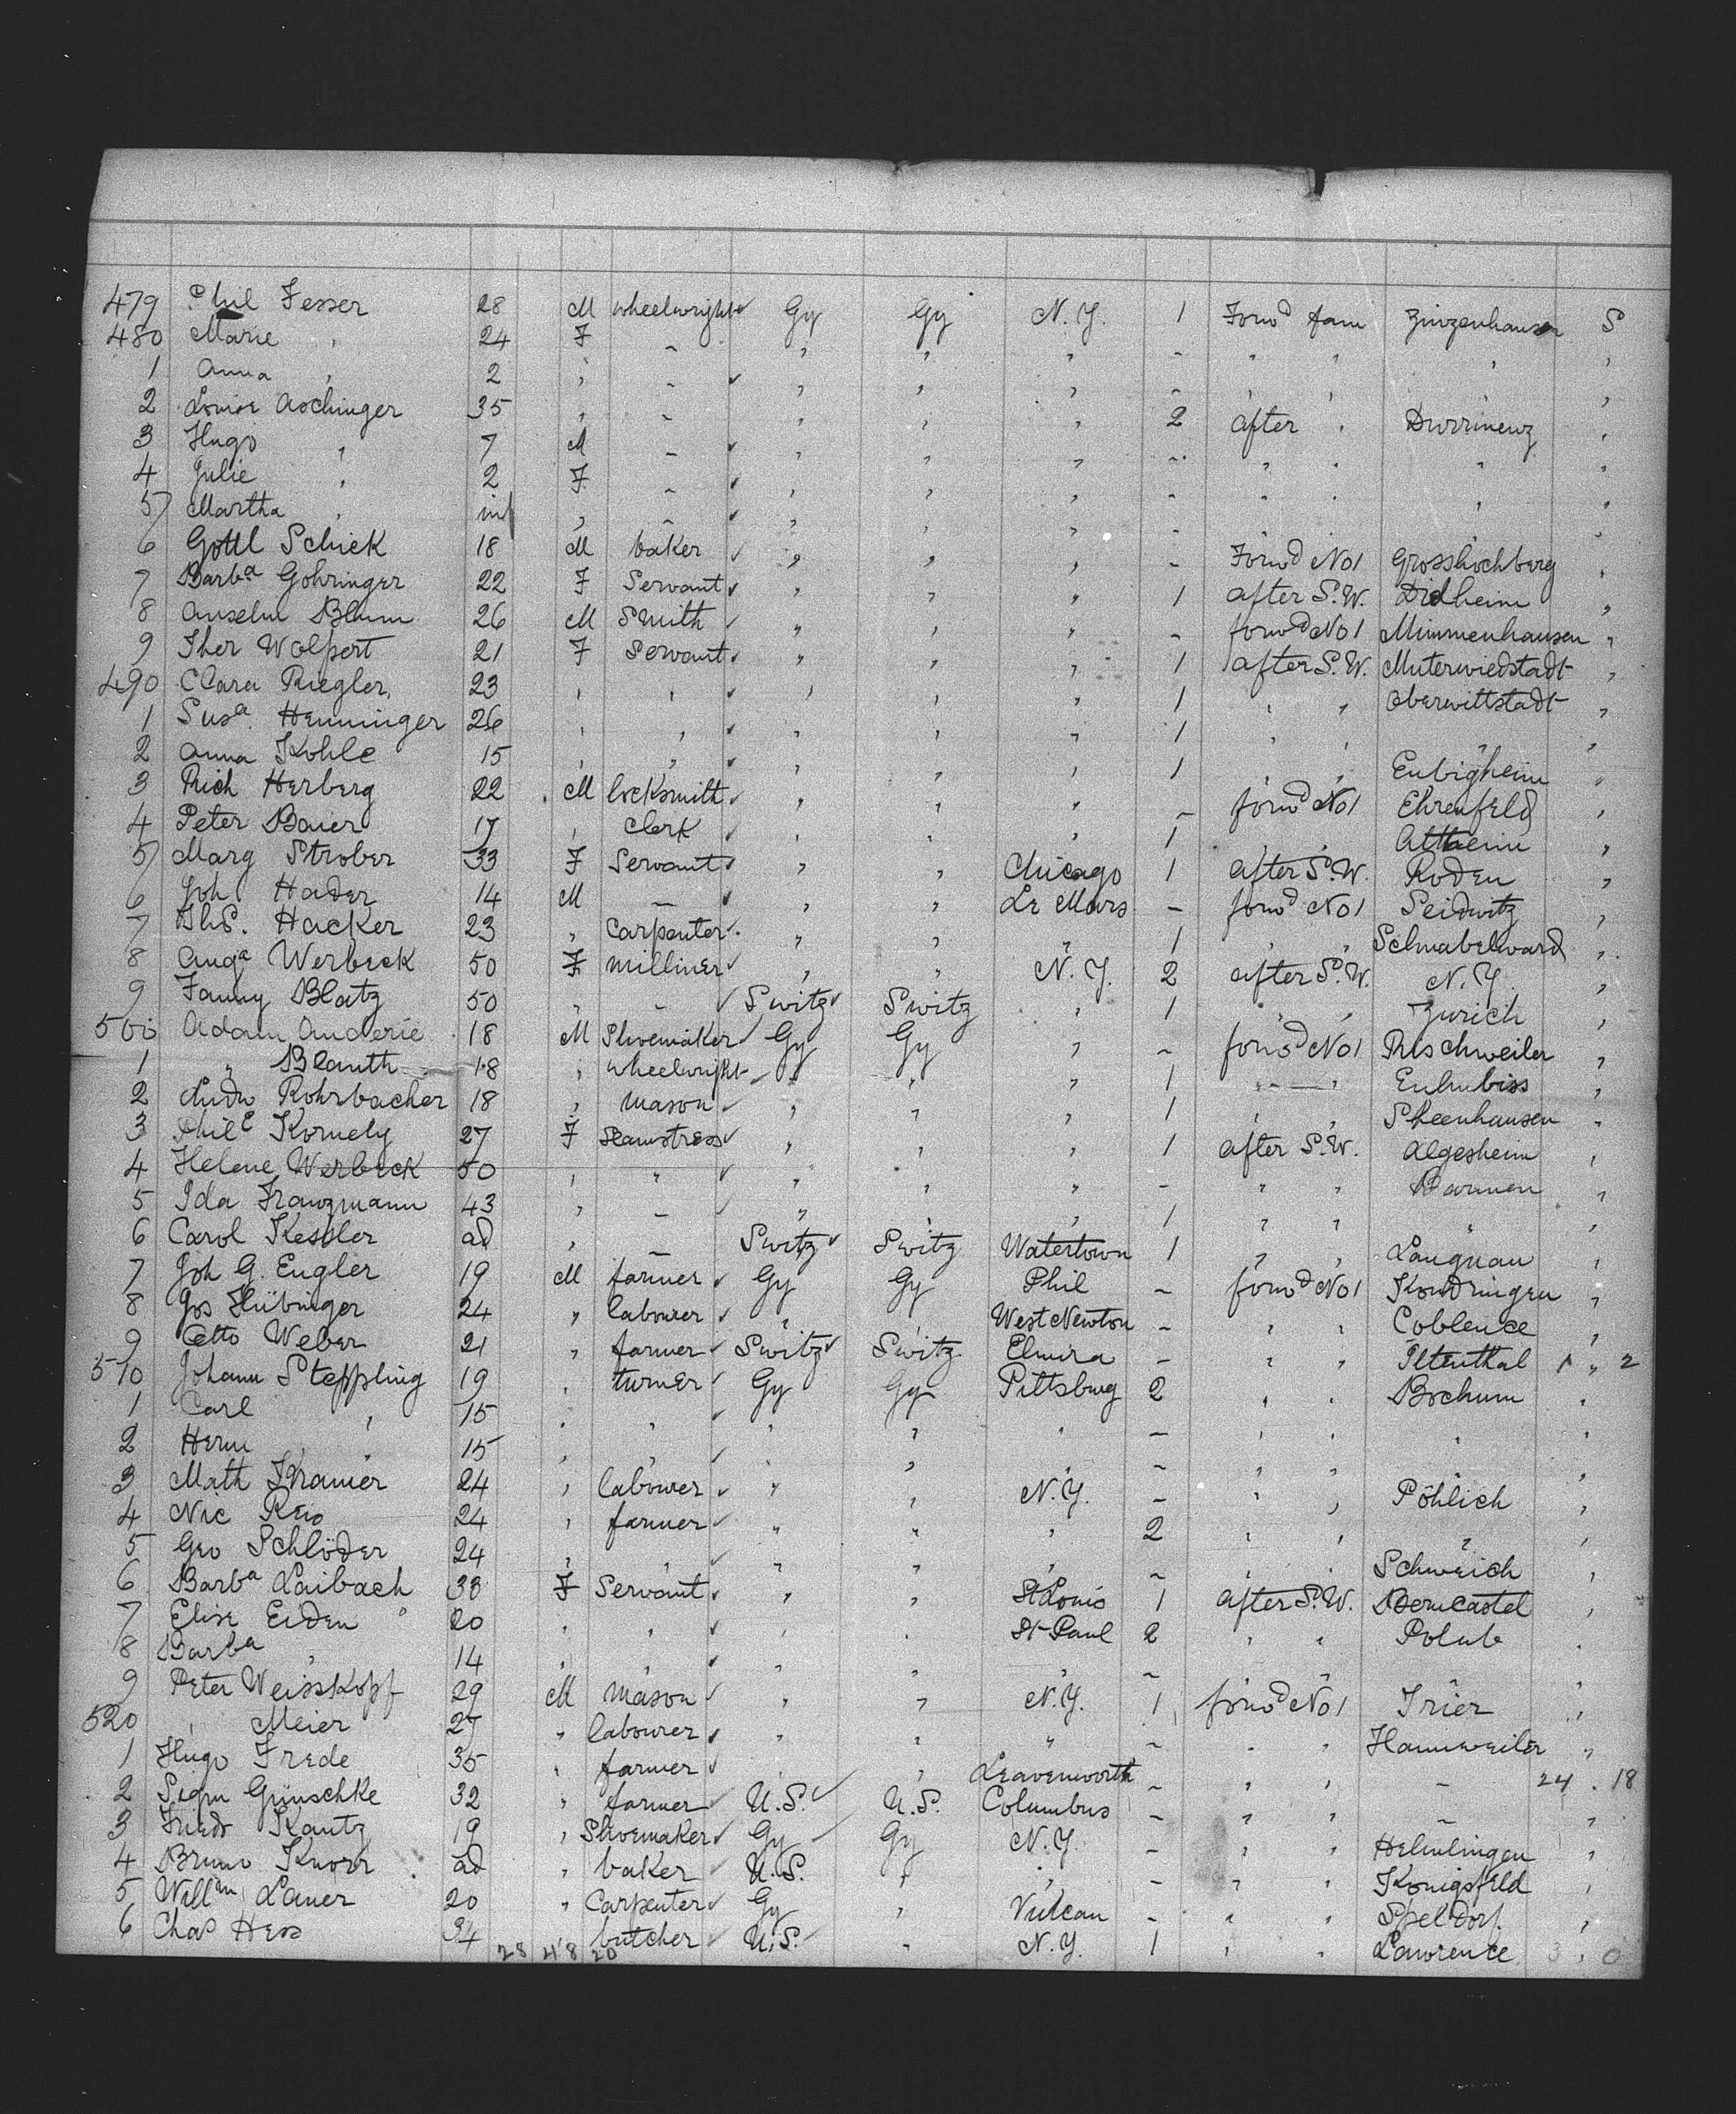 479 Phil Fesser 28 M wheelwright Gy Gy N.Y. 1 Forwd fam Zinzenhausen S
480 Marie " 24 F - " " " - " " " "
1 Anna " 2 " - " " " - " " " "
2 Louise Aschinger 35 " - " " " 2 after " Durrmenz "
3 Hugo " 7 M - " " " - " " " "
4 Julie " 2 F - " " " - " " " "
5 Martha " inf " - " " " - " " " "
6 Gottl Schick 18 M baker " " " - Forwd No 1 Grosshochberg "
7 Barba Gohringer 22 F Servant " " " 1 after S.W. Didheim "
8 Anselm Blum 26 M Smith " " " - forwd No 1 Mimmenhausen "
9 Ther Wolpert 21 F Servant " " " 1 after S.W. Muterwiedstadt "
490 Clara Riegler 23 " " " " " 1 " " Oberwittstadt "
1 Susa Henninger 26 " " " " " 1 " " " "
2 Anna Kohle 15 " " " " " 1 " " Eubigheim "
3 Rich Herberg 22 M locksmith " " " - forwd No 1 Ehrenfeld "
4 Peter Baier 17 " Clerk " " " 1 " " Altheim "
5 Marg Strober 33 F Servant " " Chicago 1 after S.W. Roden "
6 Joh Hader 14 M - " " Le Mars - forwd No 1 Seidwitz "
7 Hacker 23 " Carpenter " " " 1 " " Schnabelwaid "
8 Auga Werbeck 50 F milliner " " N.Y. 2 after S.W. N.Y. "
9 Fanny Blatz 50 " - Switz Switz " 1 " " Zurich "
500 Adam Anderie 18 M Shoemaker Gy Gy " - forwd No 1 Rieschweiler "
1 " Blauth 18 " wheelwright " " " 1 " " Eulmbiss "
2 Ludw Rohrbacher 18 " mason " " " 1 " " Steenhausen "
3 Phile Kornely 27 F Seamstress " " " 1 after S.W. Algesheim "
4 Helene Werbeck 50 " " " " " - " " Barmen "
5 Ida Franzmann 43 " - " " " 1 " " " "
6 Carol Kessler ad " - Switz Switz Watertown 1 " " Langnau "
7 Joh G. Engler 19 M farmer Gy Gy Phil - forwd No 1 Kondringen "
8 Jos Hübinger 24 " labourer " " West Newton - " " Coblence "
9 Otto Weber 21 " farmer Switz Switz Elmira - " " Iltenthal 1 " 2
510 Johann Steppling 19 " turner Gy Gy Pittsburg 2 " " Bochum "
1 Carl " 15 " " " " " - " " " "
2 Herm " 15 " " " " " - " " " "
3 Math Kramer 24 " labourer " " N.Y. - " " Pöhlich "
4 Nic 24 " farmer " " " 2 " " " "
5 Geo Schlöder 24 " " " " " - " " Schweich "
6 Barba Laibach 33 F Servant " " St Louis 1 after S.W. Berncastel "
7 Elise Eiden 20 " " " " St Paul 2 " " Polub "
8 Barba " 14 " " " " " - " " " "
9 Peter Weisskopf 29 M mason " " N.Y. 1 forwd No 1 Trier "
520 " Meier 27 " labourer " " " - " " Hannweiler "
1 Hugo Frede 35 " farmer " " Leavenworth - " " - 24 . 18
2 Sigm Günschke 32 " farmer U.S. U.S. Columbus - " " - "
3 Friedr Kautz 19 " Shoemaker Gy Gy N.Y. - " " Helmlingen "
4 Bruno Knorr ad " baker U.S. " " - " " Konigsfeld "
5 Willm Lauer 20 " Carpenter Gy " Vulcan - " " Speldorf "
6 Chas Hess 34 " butcher U.S. " N.Y. 1 " " Lawrence 3 " 0
28 48 20